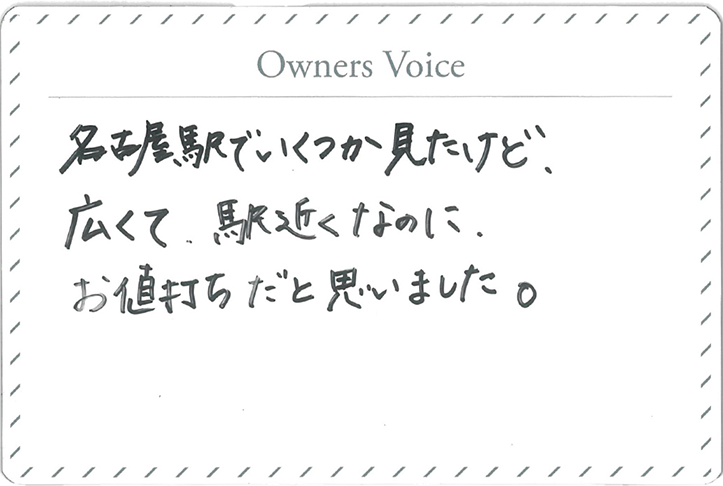 Owners Voice
名古屋駅でいくつか見たけど、
広くて、駅近くなのに、
お値打ちだと思いました。